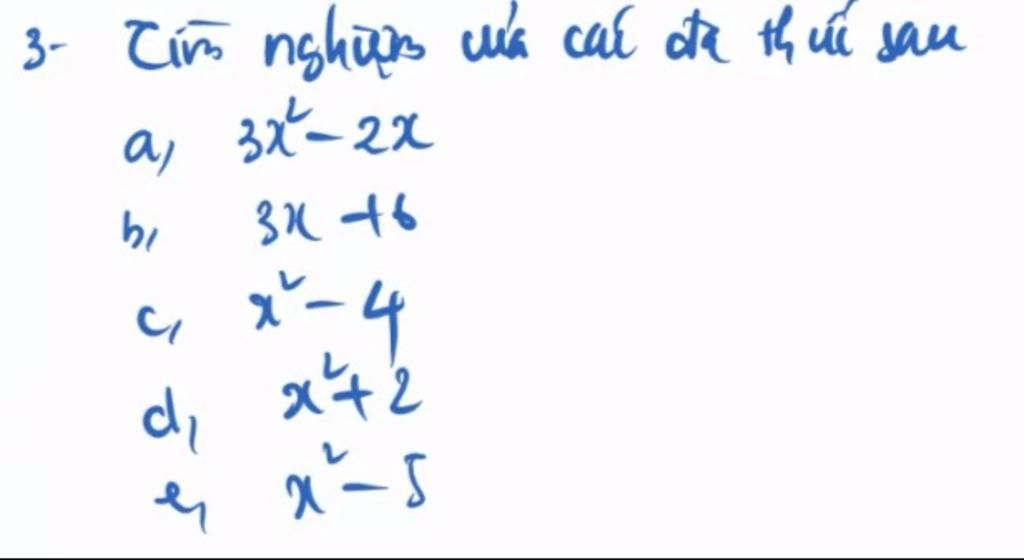 3- Tìm nghiệm của các đa thức sau
a, 3x² - 2x
b, 3x + 6
c, x² - 4
d, x² + 2
e, x² - 5